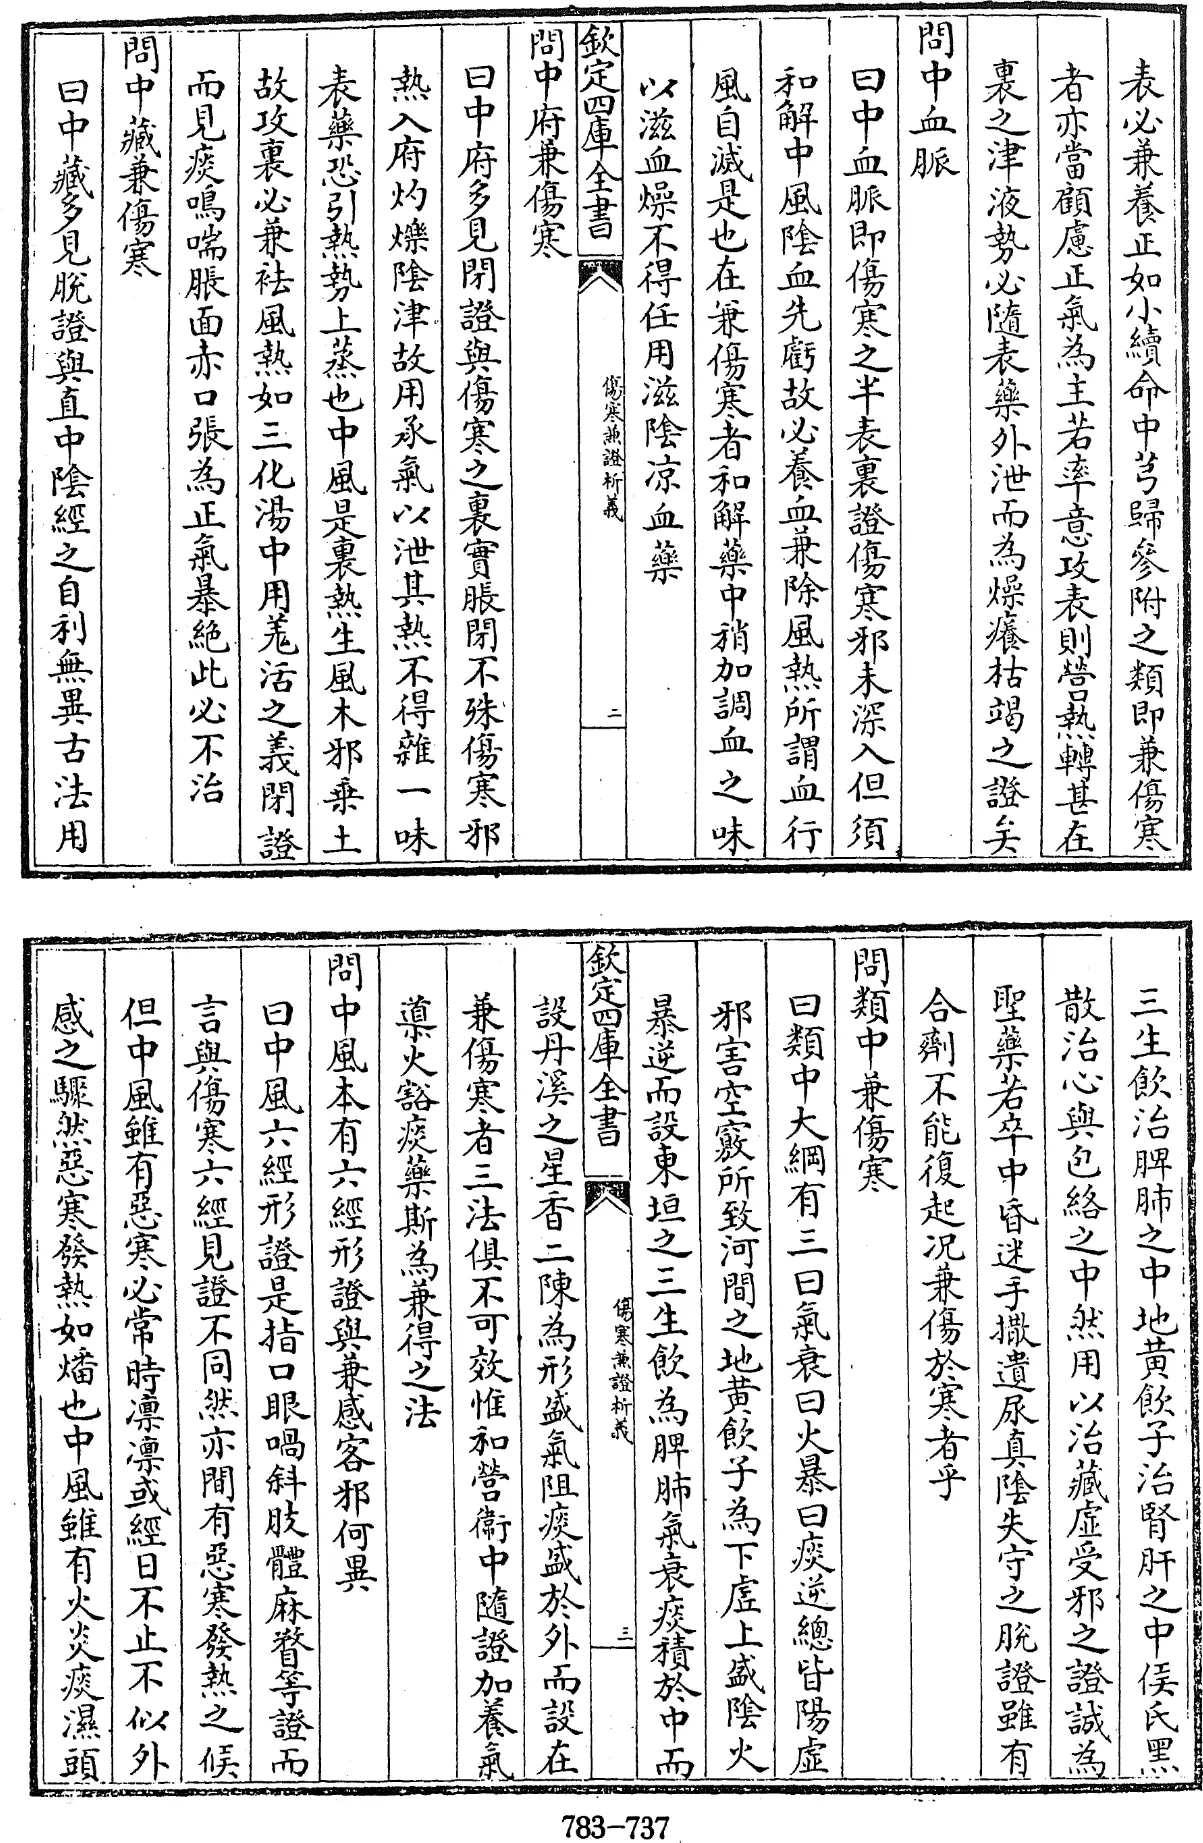 表必兼養正如小續命中芎歸參附之類即兼傷寒
者亦當顧慮正氣為主若率意攻表則營熱轉甚在
裏之津液勢必隨表藥外泄而為燥癢枯竭之證矣
問中血脈
曰中血脈即傷寒之半表裏證傷寒邪未深入但須
和解中風陰血先虧故必養血兼除風熱所謂血行
風自滅是也在兼傷寒者和解藥中稍加調血之味
以滋血燥不得任用滋陰凉血藥
欽定四庫全書
傷寒兼證析義
二
問中府兼傷寒
曰中府多見閉證與傷寒之裏實脹閉不殊傷寒邪
熱入府灼爍陰津故用承氣以泄其熱不得雜一味
表藥恐引熱勢上蒸也中風是裏熱生風木邪乗土
故攻裏必兼袪風熱如三化湯中用羗活之義閉證
而見痰鳴喘脹面赤口張為正氣暴絶此必不治
問中藏兼傷寒
曰中藏多見脫證與直中陰經之自利無異古法用
三生飲治脾肺之中地黄飲子治腎肝之中侯氏黑
散治心與包絡之中然用以治藏虛受邪之證誠為
聖藥若卒中昏迷手撒遺尿真陰失守之脫證雖有
合劑不能復起况兼傷於寒者乎
問類中兼傷寒
曰類中大綱有三曰氣衰曰火暴曰痰逆總皆陽虛
邪害空竅所致河間之地黄飲子為下虛上盛陰火
暴逆而設東垣之三生飲為脾肺氣衰痰積於中而
欽定四庫全書
傷寒兼證析義
三
設丹溪之星香二陳為形盛氣阻痰盛於外而設在
兼傷寒者三法俱不可效惟和營衛中隨證加養氣
導火豁痰藥斯為兼得之法
問中風本有六經形證與兼感客邪何異
曰中風六經形證是指口眼喎斜肢體麻瞀等證而
言與傷寒六經見證不同然亦間有惡寒發熱之候
但中風雖有惡寒必常時凛凛或經日不止不似外
感之驟然惡寒發熱如燔也中風雖有火炎痰濕頭
783-737